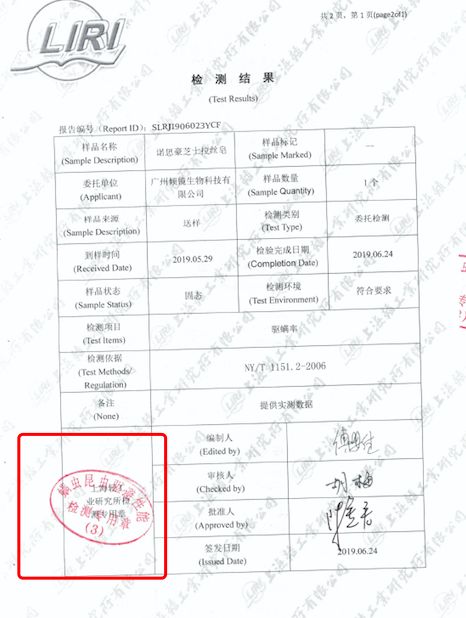 LIRI
共 2 页、第 1 页(page2of1)
检 测 结 果
(Test Results)
报告编号（Report ID）: SLRJ1906023YCF
样品名称
(Sample Description)
诺思豪芝士拉丝皂
样品标记
(Sample Marked)
—
委托单位
(Applicant)
广州倾镜生物科技有
限公司
样品数量
(Sample Quantity)
1 个
样品来源
(Sample Description)
送样
检测类别
(Test Type)
委托检测
到样时间
(Received Date)
2019.05.29
检验完成日期
(Completion Date)
2019.06.24
样品状态
(Sample Status)
固态
检测环境
(Test Environment)
符合要求
检测项目
(Test Items)
驱螨率
检测依据
(Test Methods/
Regulation)
NY/T 1151.2-2006
备注
(None)
提供实测数据
上海轻工
业研究所检
测专用章
检测专用章
(3)
编制人
(Edited by)
审核人
(Checked by)
胡梅
批准人
(Approved by)
签发日期
(Issued Date)
2019.06.24